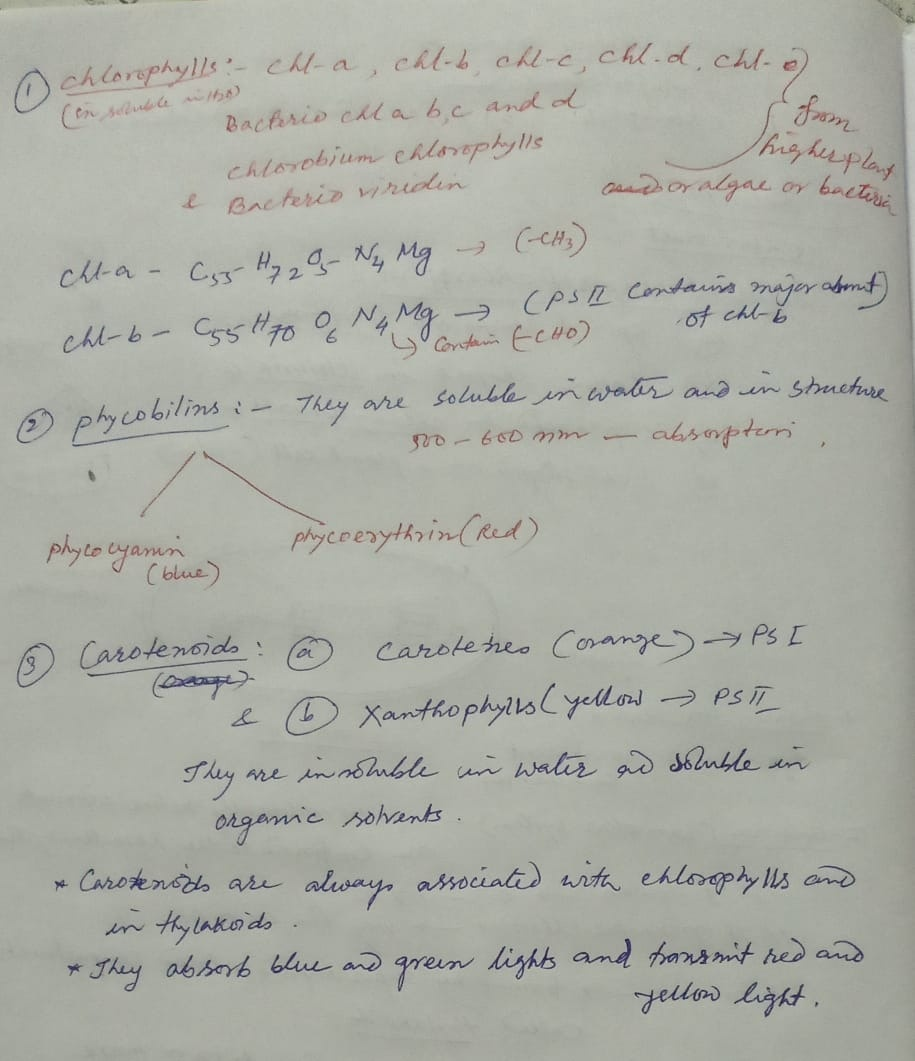 ① chlorophylls :- chl-a, chl-b, chl-c, chl-d, chl-e
(in soluble in H2O)
Bacterio chl a b, c and d
chlorobium chlorophylls
& Bacterio viridin
from
higher plant
or algae or bacteria
chl-a - C55 H72 O5 N4 Mg → (-CH3)
chl-b - C55 H70 O6 N4 Mg → (PS II Contains major abmt)
of chl-b
↳ Contain (-CHO)
② phycobilins :- They are soluble in water and in structure
500 - 600 nm - absorption,
phycocyanin
(blue)
phycoerythrin (Red)
③ Carotenoids : ⓐ Carotenes (orange) → PS I
& ⓑ Xanthophylls (yellow → PS II
They are insoluble in water ad soluble in
organic solvents.
* Carotenoids are always associated with chlorophylls and
in thylakoids.
* They absorb blue and green lights and transmit red and
yellow light.